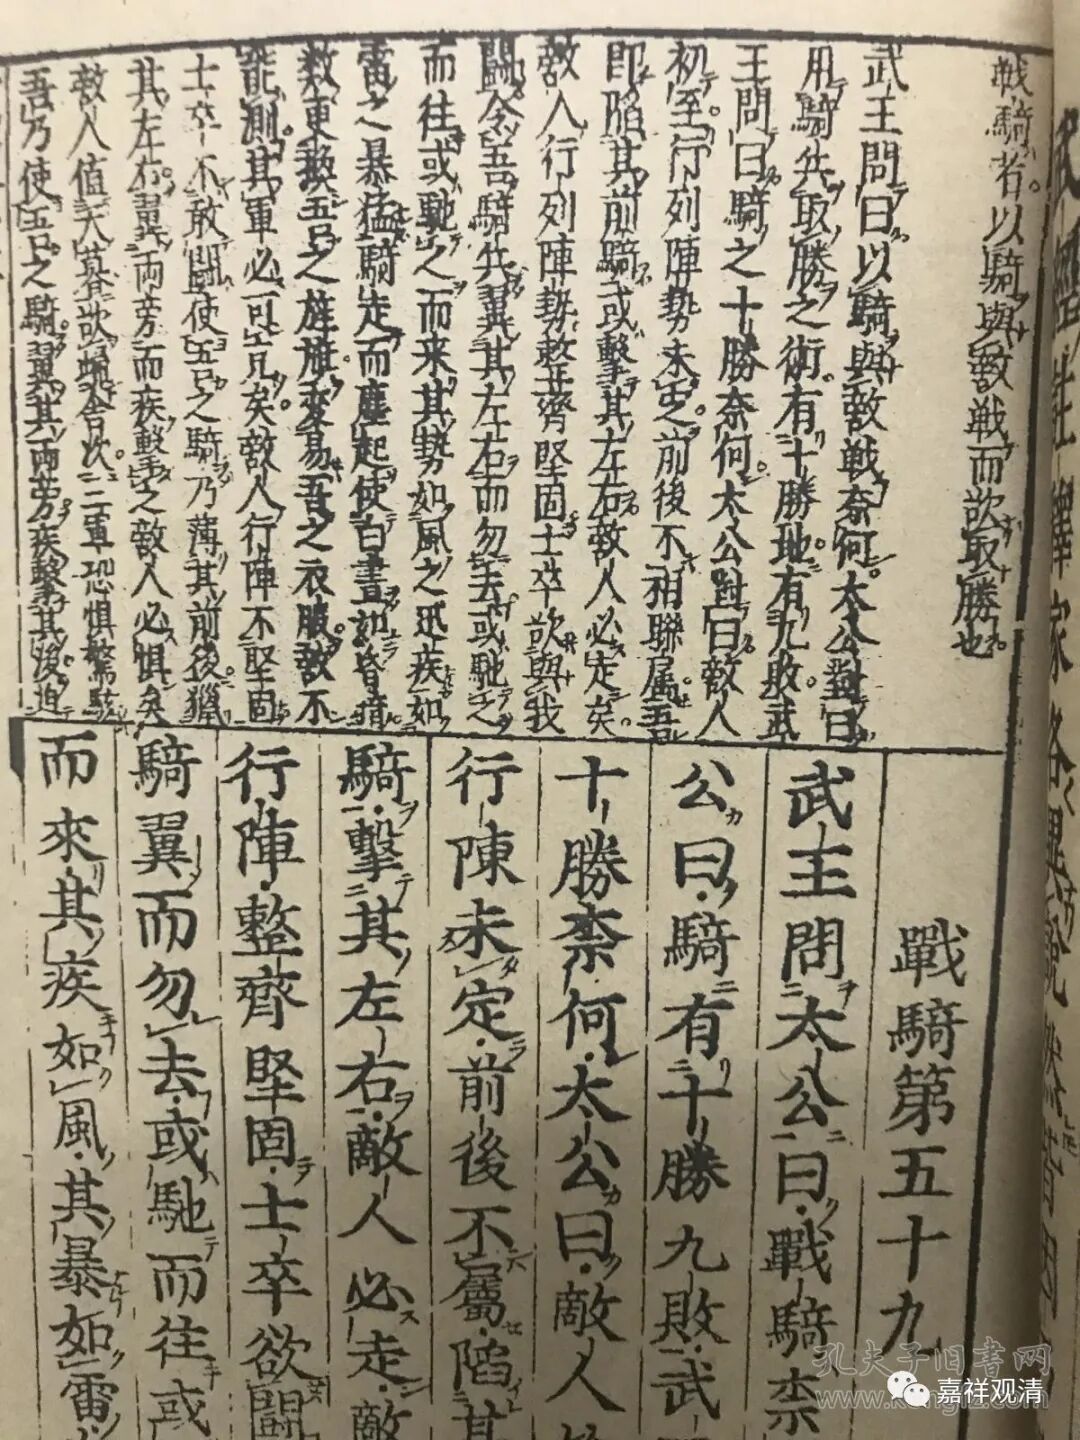 戦騎者以騎與敵戦而欲取勝也
武王問曰以騎與敵戦奈何太公對曰
用騎兵取勝之術有十勝地有九敗武
王問曰騎之十勝奈何太公對曰敵人
初至行列陣勢未定前後不相聯属吾
即陷其前騎或擊其左右敵人必走矣
敵人行列陣勢整齊堅固士卒欲與我
闘令吾騎兵翼其左右而勿去或馳之
而往或馳之而来其勢如風之迅疾如
雷之暴猛騎走而塵起使白晝如昏暗
数更換五色之旌旗変易吾之衣服敵不
能測其軍必可克矣敵人行陣不堅固
士卒不敢闘使五色之騎乃薄其前後獵
其左右翼両旁而疾擊之敵人必惧矣
敵人值天暮欲帰舎次三軍恐惧驚駭
吾乃使五色之騎翼其両旁疾擊其後迫
戰騎第五十九
武王問太公曰戰騎奈
公曰騎有十勝九敗武
十勝奈何太公曰敵人
行陳未定前後不屬陷其
騎擊其左右敵人必走敵
行陣整齊堅固士卒欲闘
騎翼而勿去或馳而往或
而來其疾如風其暴如雷
孔夫子旧书网
嘉祥观清